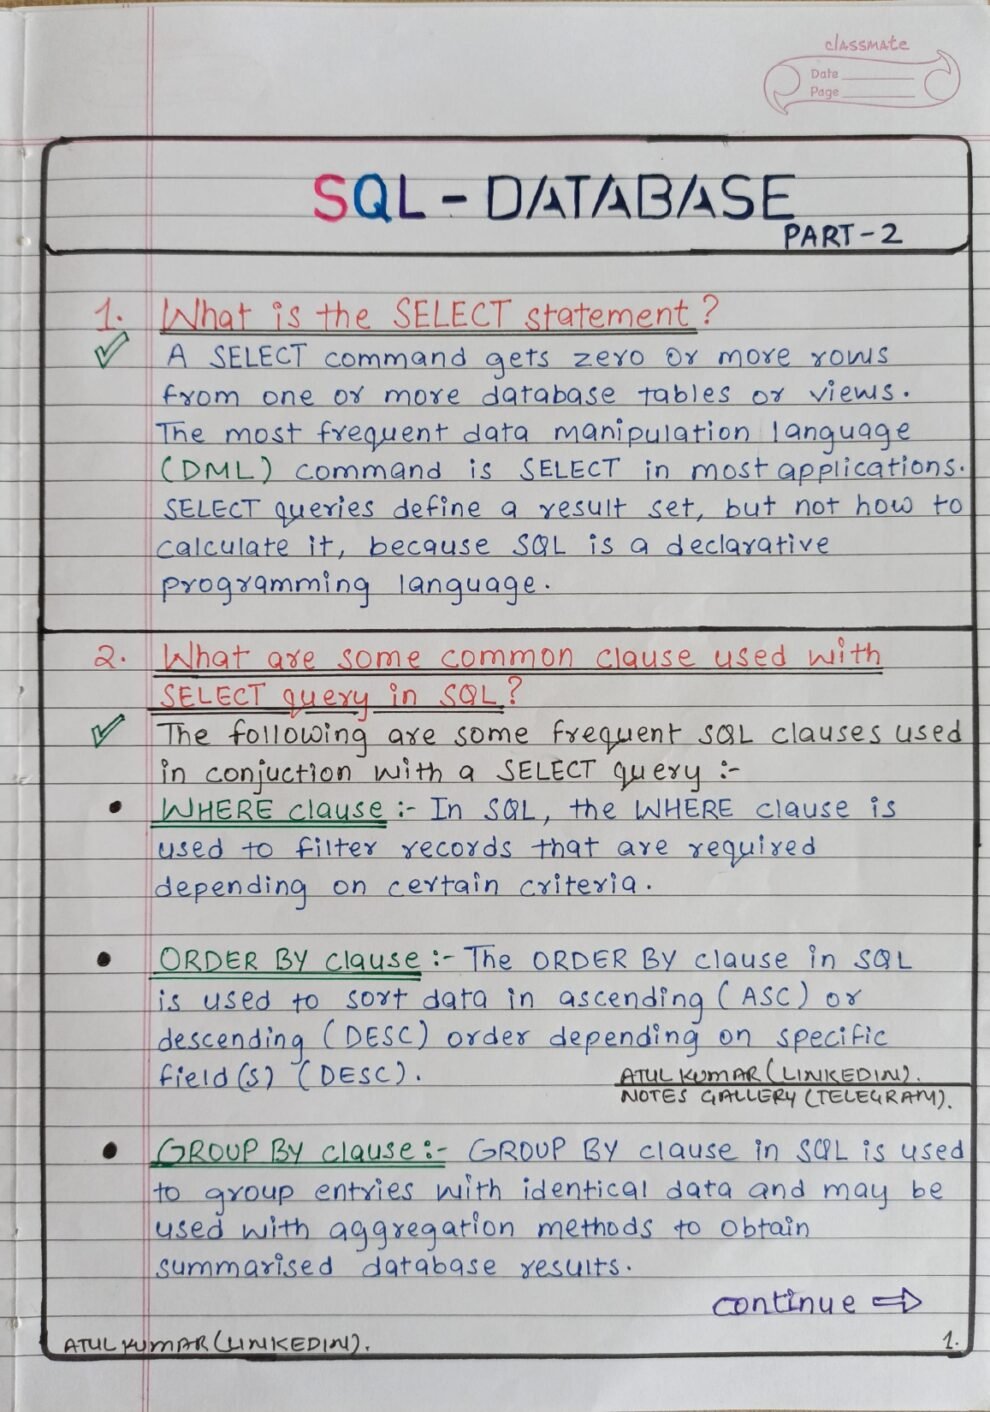 classmate
Date
Page
SQL - DATABASE
PART - 2
1. What is the SELECT statement?
A SELECT command gets zero or more rows
from one or more database tables or views.
The most frequent data manipulation language
(DML) command is SELECT in most applications.
SELECT queries define a result set, but not how to
calculate it, because SQL is a declarative
programming language.
2. What are some common clause used with
SELECT query in SQL?
The following are some frequent SQL clauses used
in conjuction with a SELECT query :-
• WHERE clause :- In SQL, the WHERE clause is
used to filter records that are required
depending on certain criteria.
• ORDER BY clause :- The ORDER BY clause in SQL
is used to sort data in ascending (ASC) or
descending (DESC) order depending on specific
field(s) (DESC).
ATUL KUMAR (LINKEDIN).
NOTES GALLERY (TELEGRAM).
• GROUP BY clause :- GROUP BY clause in SQL is used
to group entries with identical data and may be
used with aggregation methods to obtain
summarised database results.
continue ⇒
ATUL KUMAR (LINKEDIN).
1.